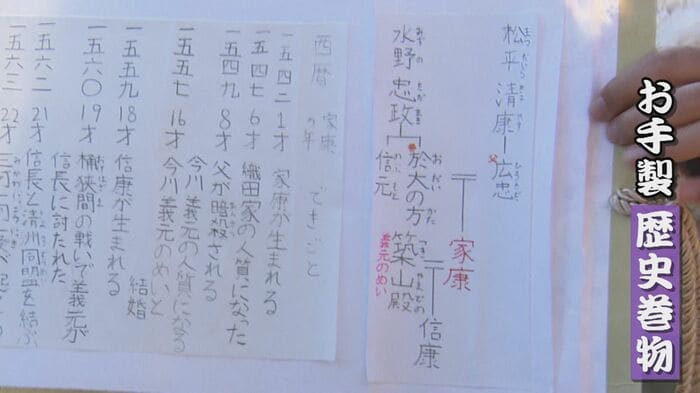 お手製
歴史巻物
松平清康
まつだいら きよ やす
広忠
ひろただ
父
家康
水野忠政
みずの ただ まさ
於大の方
おだい かた
信元
のぶもと
築山殿
つきやまどの
義元のめい
信康
西暦 家康の年 できごと
一五四二 1才 家康が生まれる
一五四七 6才 織田家の人質になった
一五四九 8才 父が暗殺される
今川義元の人質になる
一五五七 16才 今川義元のめいと結婚
一五五九 18才 信康が生まれる
一五六〇 19才 桶狭間の戦いで義元が
信長に討たれた
一五六二 21才 信長と清州同盟を結ぶ
一五六三 22才 三河一向一